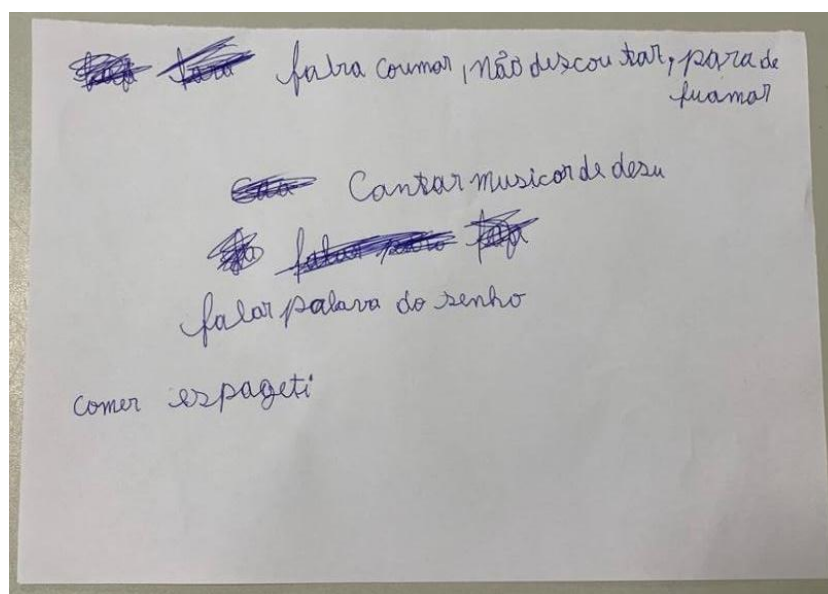 falra coumar, não descoutar, para de
fuamar
Cantar musicor de desu
falar palava do senho
comer espageti